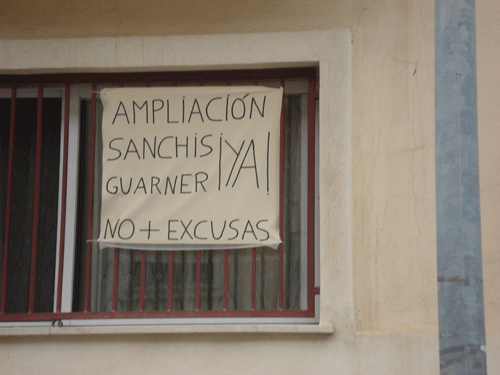 AMPLIACIÓN
SANCHIS ¡YA!
GUARNER
NO + EXCUSAS